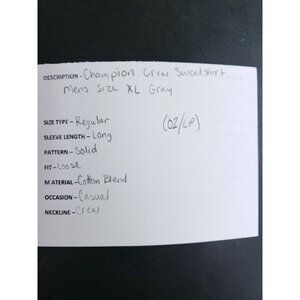 DESCRIPTION - Champion Crew Sweatshirt
Mens Size XL Gray
SIZE TYPE - Regular (02/LP)
SLEEVE LENGTH - Long
PATTERN - Solid
FIT - Loose
MATERIAL - Cotton Blend
OCCASION - Casual
NECKLINE - Crew